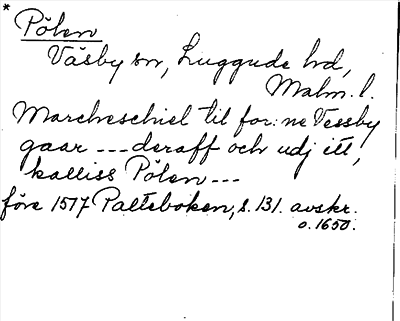 *
Pölen
Väsby sn, Luggude hd,
Malm. l.
Marcheschiel til for: ne Vessby
gaar --- deraff och udj itt,
kalliss Pölen ---
före 1517 Palteboken, s. 131. avskr.
o. 1650.